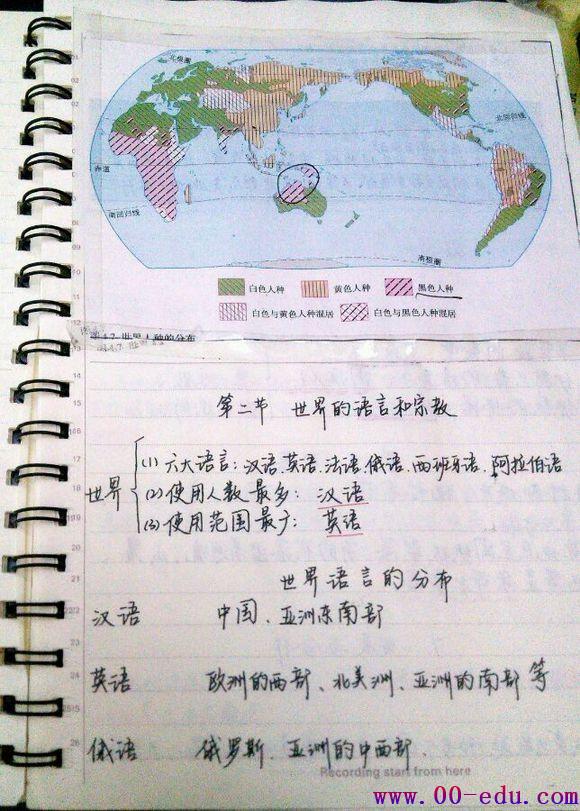 北极圈
北回归线
赤道
南回归线
南极圈
白色人种 黄色人种 黑色人种
白色与黄色人种混居 白色与黑色人种混居
图4.7 世界人种的分布
第二节 世界的语言和宗教
世界
(1) 六大语言:汉语.英语.法语.俄语.西班牙语.阿拉伯语
(2) 使用人数最多:汉语
(3) 使用范围最广:英语
世界语言的分布
汉语 中国、亚洲东南部
英语 欧洲的西部、北美洲、亚洲的南部等
俄语 俄罗斯、亚洲的中西部
Recording start from here
www.00-edu.com